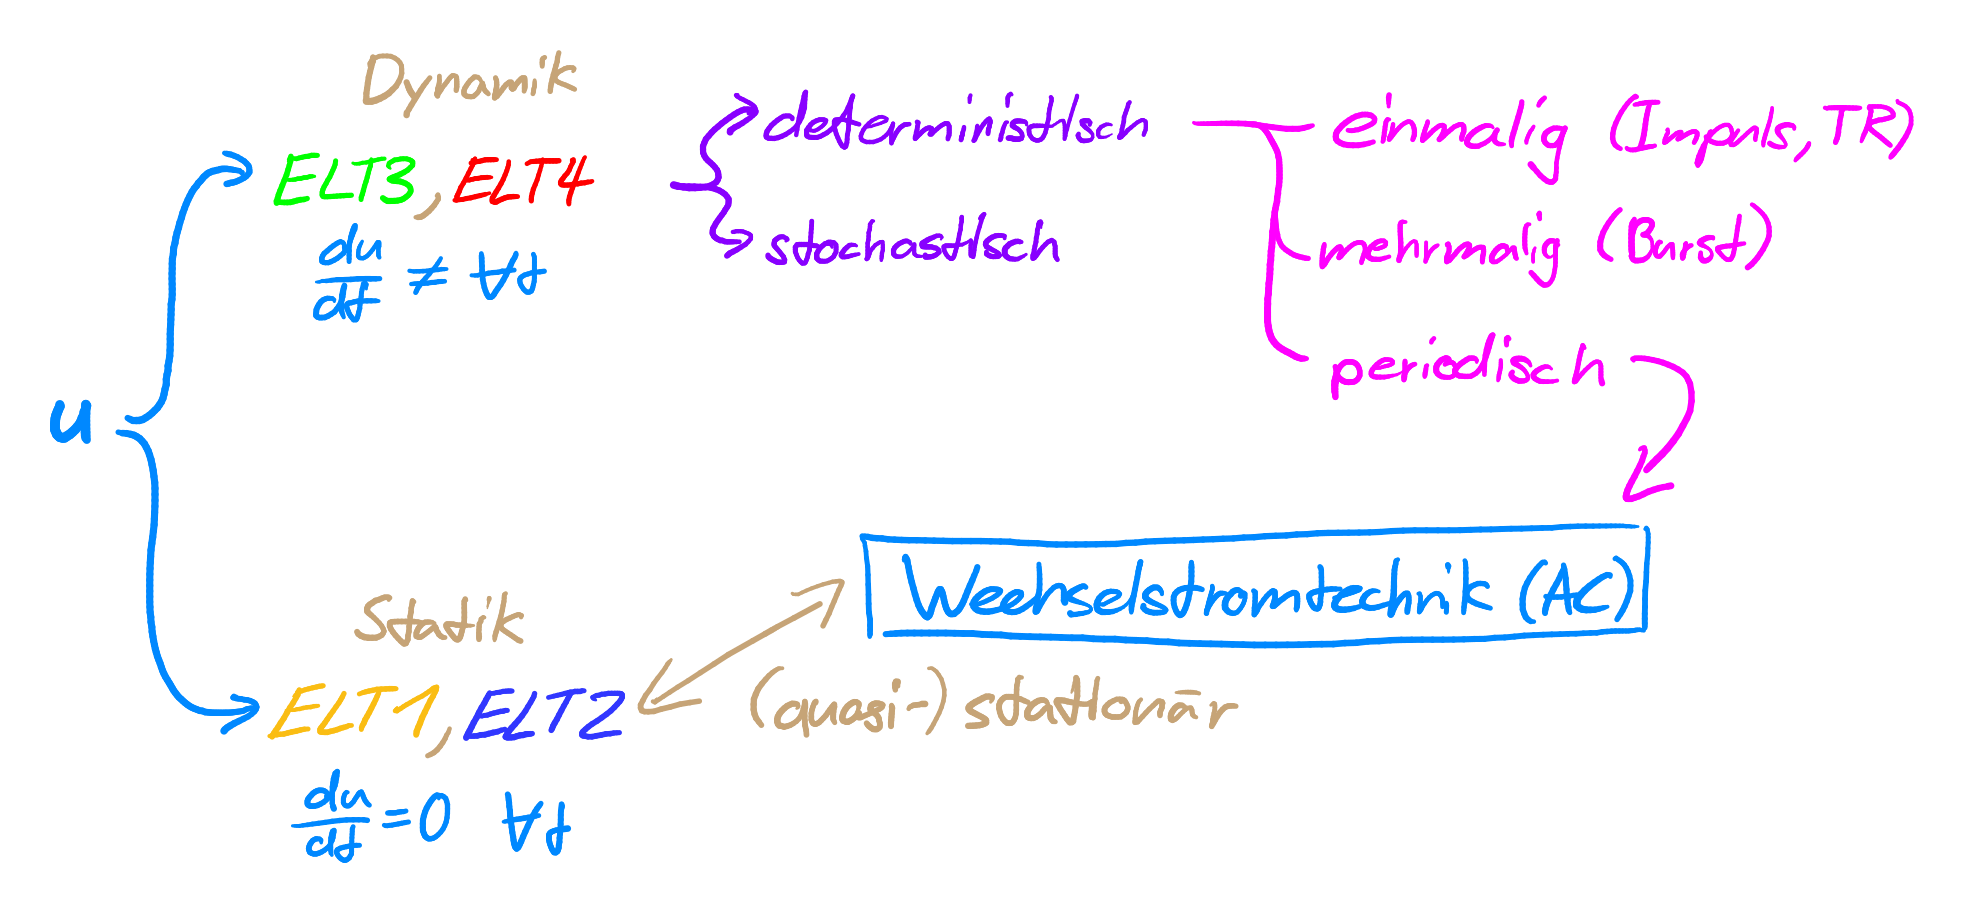 Dynamik
ELT3, ELT4
du/dt ≠ ∀t
deterministisch
stochastisch
einmalig (Impuls, TR)
mehrmalig (Burst)
periodisch
u
Wechselstromtechnik (AC)
Statik
ELT1, ELT2
(quasi-) stationär
du/dt = 0 ∀t